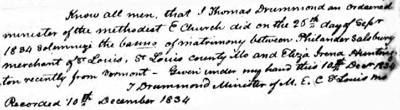 Know all men, that I Thomas Drummond an ordained
minister of the methodest E Church did on the 25th day of Sepr
1834 Solemnize the banns of matrimony between Philander Salsbury
merchant of St Louis, St Louis county Mo and Eliza Irena Hunting-
ton recently from Vermont - Given under my hand this 10th Decr 1834
T Drummond Minister of M. E. C St Louis Mo
Recorded 10th December 1834